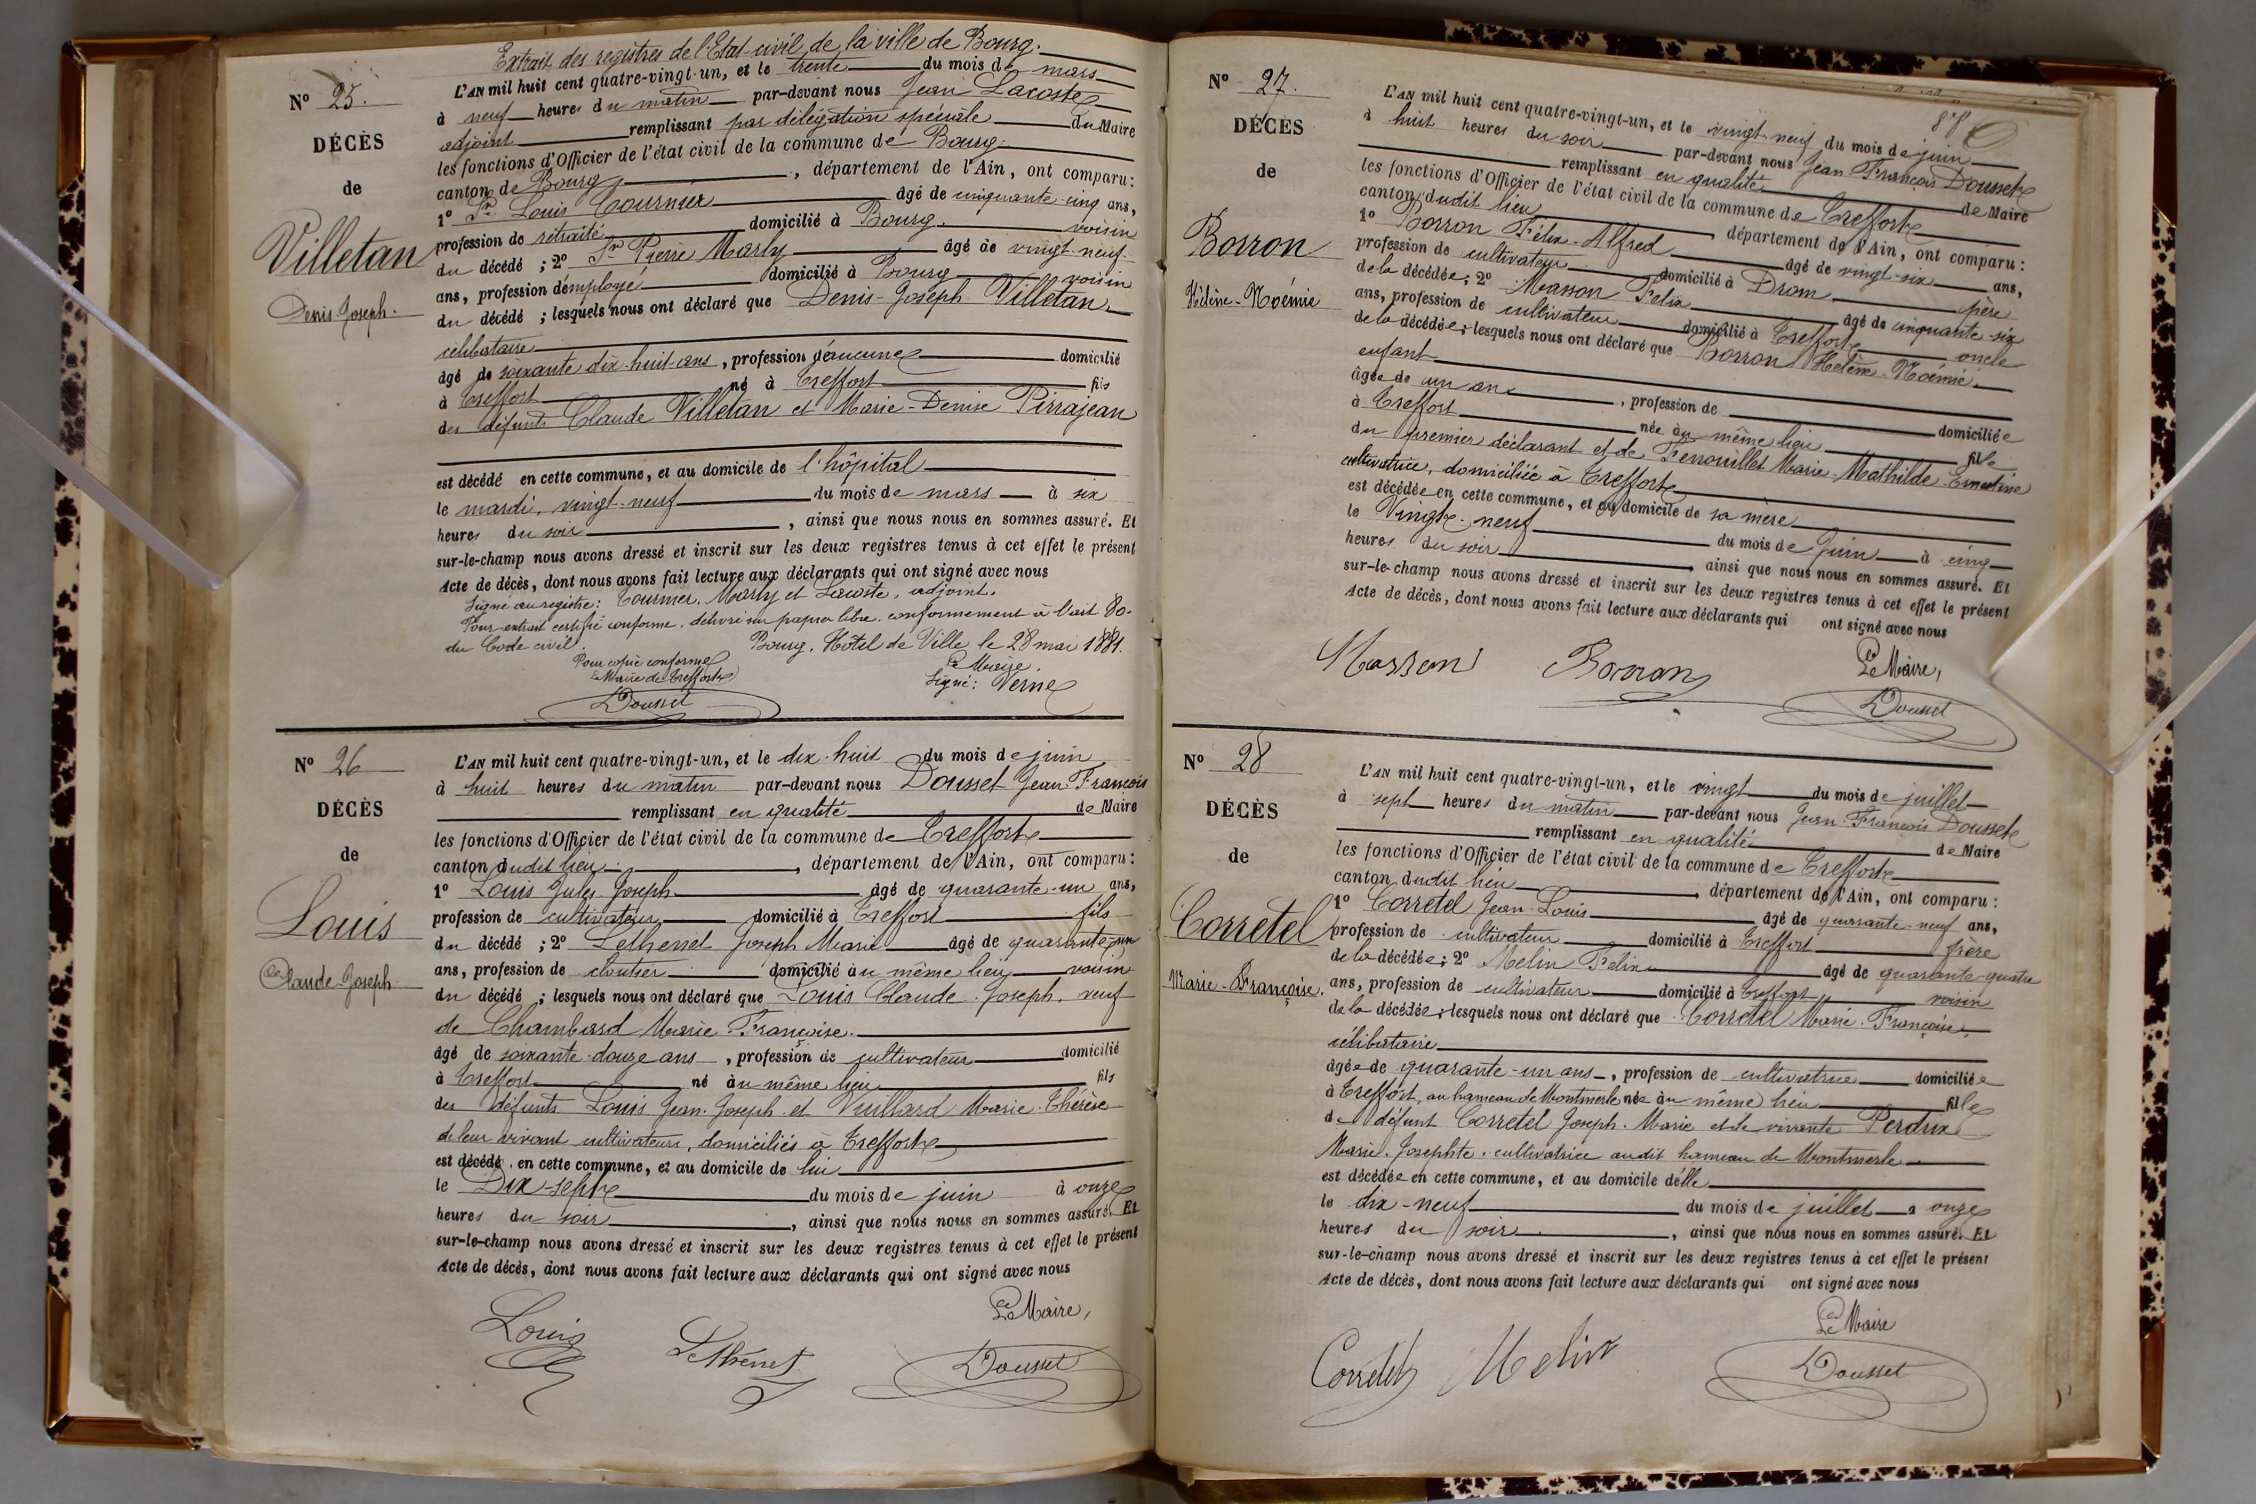 Extrait des registres de l'Etat civil de la ville de Bourg.
N° 25.
DÉCÈS
de
Villetan
Denis-Joseph.
L'AN mil huit cent quatre-vingt-un, et le trente du mois de mars
à neuf heures du matin par-devant nous Jean Lacoste
adjoint remplissant par délégation spéciale du Maire
les fonctions d'Officier de l'état civil de la commune de Bourg.
canton de Bourg, département de l'Ain, ont comparu:
1° Sr Louis Tournier âgé de cinquante-cinq ans,
profession de retraité domicilié à Bourg. voisin
du décédé ; 2° Sr Pierre Marly âgé de vingt-neuf
ans, profession d'employé domicilié à Bourg voisin
du décédé ; lesquels nous ont déclaré que Denis-Joseph Villetan
célibataire
âgé de soixante dix-huit ans, profession d'aucune domicilié
à Treffort né à Treffort fils
des défunts Claude Villetan et Marie-Denise Pirrajean
est décédé en cette commune, et au domicile de l'hôpital
le mardi, vingt-neuf du mois de mars à six
heures du soir, ainsi que nous nous en sommes assuré. Et
sur-le-champ nous avons dressé et inscrit sur les deux registres tenus à cet effet le présent
Acte de décès, dont nous avons fait lecture aux déclarants qui ont signé avec nous
Signé au registre: Tournier, Marly et Lacoste, adjoint.
Pour extrait certifié conforme, délivré sur papier libre, conformement à l'art 80.
du Code civil. Bourg, Hôtel de Ville le 28 mai 1881.
Pour copie conforme Le Maire,
Le Maire de Treffort Signé: Verne
Dousset
N° 26
DÉCÈS
de
Louis
Claude Joseph
L'AN mil huit cent quatre-vingt-un, et le dix-huit du mois de juin
à huit heures du matin par-devant nous Dousset Jean François
remplissant en qualité de Maire
les fonctions d'Officier de l'état civil de la commune de Treffort
canton dudit lieu, département de l'Ain, ont comparu:
1° Louis Jules Joseph âgé de quarante-un ans,
profession de cultivateur domicilié à Treffort fils
du décédé ; 2° Lethenet Joseph Marie âgé de quarante-un
ans, profession de cloutier domicilié au même lieu voisin
du décédé ; lesquels nous ont déclaré que Louis Claude-Joseph, veuf
de Chambard Marie-Françoise.
âgé de soixante-douze ans, profession de cultivateur domicilié
à Treffort né au même lieu fils
des défunts Louis Jean-Joseph et Vuillard Marie-Thérèse
de leur vivant cultivateurs, domiciliés à Treffort
est décédé en cette commune, et au domicile de lui
le Dix-sept du mois de juin à onze
heures du soir, ainsi que nous nous en sommes assuré. Et
sur-le-champ nous avons dressé et inscrit sur les deux registres tenus à cet effet le présent
Acte de décès, dont nous avons fait lecture aux déclarants qui ont signé avec nous
Le Maire,
Louis Lethenet Dousset
88
N° 27.
DÉCÈS
de
Borron
Hélène-Noémie
L'AN mil huit cent quatre-vingt-un, et le vingt-neuf du mois de juin
à huit heures du soir par-devant nous Jean François Dousset
remplissant en qualité de Maire
les fonctions d'Officier de l'état civil de la commune de Treffort
canton dudit lieu, département de l'Ain, ont comparu:
1° Borron Félix-Alfred âgé de vingt-six ans,
profession de cultivateur domicilié à Drom père
de la décédée ; 2° Masson Félix âgé de cinquante-six
ans, profession de cultivateur domicilié à Treffort oncle
de la décédée ; lesquels nous ont déclaré que Borron Hélène-Noémie.
enfant
âgée de un an, profession de domiciliée
à Treffort née au même lieu fille
du premier déclarant et de Fenouillet Marie-Mathilde-Ernestine
cultivatrice, domiciliée à Treffort
est décédée en cette commune, et au domicile de sa mère
le Vingt-neuf du mois de Juin à cinq
heures du soir, ainsi que nous nous en sommes assuré. Et
sur-le-champ nous avons dressé et inscrit sur les deux registres tenus à cet effet le présent
Acte de décès, dont nous avons fait lecture aux déclarants qui ont signé avec nous
Le Maire,
Masson Borron Dousset
N° 28
DÉCÈS
de
Corretel
Marie-Françoise.
L'AN mil huit cent quatre-vingt-un, et le vingt du mois de juillet
à sept heures du matin par-devant nous Jean-François Dousset
remplissant en qualité de Maire
les fonctions d'Officier de l'état civil de la commune de Treffort
canton dudit lieu, département de l'Ain, ont comparu:
1° Corretel Jean-Louis âgé de quarante-neuf ans,
profession de cultivateur domicilié à Treffort frère
de la décédée ; 2° Melin Félix âgé de quarante-quatre
ans, profession de cultivateur domicilié à Treffort voisin
de la décédée ; lesquels nous ont déclaré que Corretel Marie-Françoise,
célibataire
âgée de quarante-un ans, profession de cultivatrice domiciliée
à Treffort, au hameau de Montmerle née au même lieu fille
de défunt Corretel Joseph-Marie et de vivante Perdrix
Marie-Josephte, cultivatrice audit hameau de Montmerle
est décédée en cette commune, et au domicile d'elle
le dix-neuf du mois de juillet à onze
heures du soir, ainsi que nous nous en sommes assuré. Et
sur-le-champ nous avons dressé et inscrit sur les deux registres tenus à cet effet le présent
Acte de décès, dont nous avons fait lecture aux déclarants qui ont signé avec nous
Le Maire
Corretel Melin Dousset